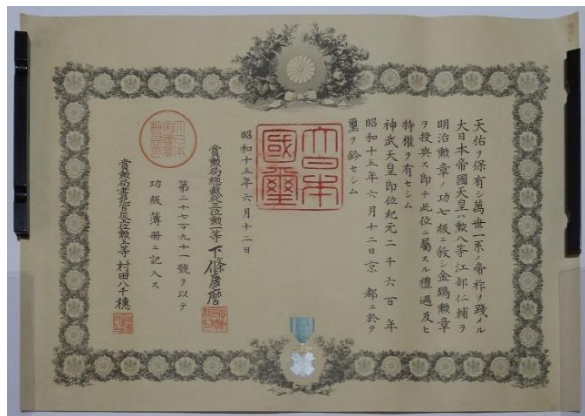 天佑ヲ保有シ萬世一系ノ帝祚ヲ踐メル
大日本帝國天皇ハ勲八等江部仁補ヲ
明治勲章ノ功七級ニ敘シ金鵄勲章
ヲ授與ス即チ此位ニ屬スル禮遇及ヒ
特權ヲ有セシム
神武天皇即位紀元二千六百年
昭和十五年六月十二日京都ニ於テ
璽ヲ鈐セシム
大日本
國璽
昭和十五年六月十二日
賞勲局總裁從三位勲一等下條康麿
第二十七百九十一號ヲ以テ
功級簿冊ニ記入ス
賞勲局書記官從五位勲五等村田八千穗